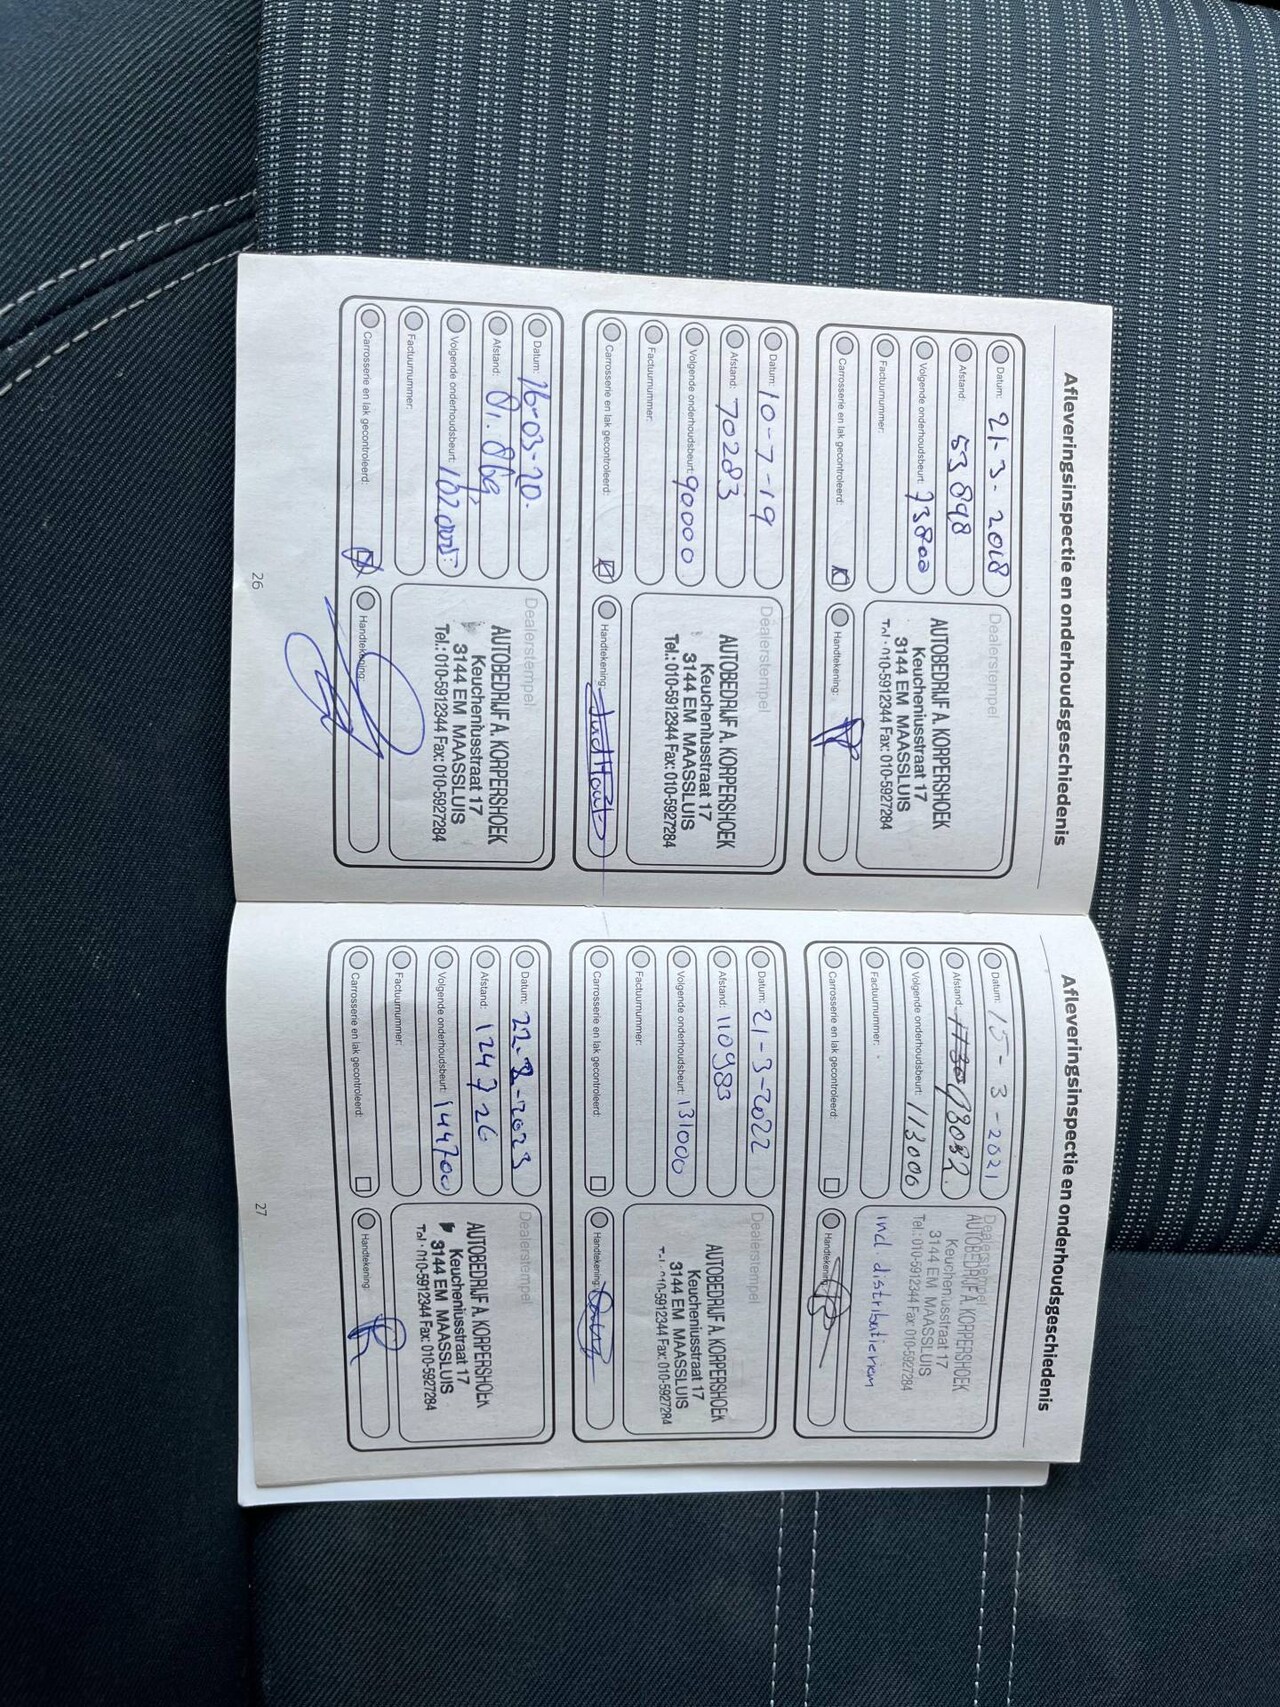 Afleveringsinspectie en onderhoudsgeschiedenis
Datum: 21-3-2018
Afstand: 53898
Volgende onderhoudsbeurt: 73800
Factuurnummer:
Carrosserie en lak gecontroleerd:
Dealerstempel
AUTOBEDRIJF A. KORPERSHOEK
Keucheniusstraat 17
3144 EM MAASSLUIS
Tel.: 010-5912344 Fax: 010-5927284
Handtekening:
Datum: 10-7-19
Afstand: 70283
Volgende onderhoudsbeurt: 90000
Factuurnummer:
Carrosserie en lak gecontroleerd:
Dealerstempel
AUTOBEDRIJF A. KORPERSHOEK
Keucheniusstraat 17
3144 EM MAASSLUIS
Tel.: 010-5912344 Fax: 010-5927284
Handtekening:
Datum: 16-03-20.
Afstand:
Volgende onderhoudsbeurt: 102.000
Factuurnummer:
Carrosserie en lak gecontroleerd:
Dealerstempel
AUTOBEDRIJF A. KORPERSHOEK
Keucheniusstraat 17
3144 EM MAASSLUIS
Tel.: 010-5912344 Fax: 010-5927284
Handtekening:
26
Afleveringsinspectie en onderhoudsgeschiedenis
Datum: 15-3-2021
Afstand: 93082.
Volgende onderhoudsbeurt: 113000
Factuurnummer:
Carrosserie en lak gecontroleerd:
Dealerstempel
AUTOBEDRIJF A. KORPERSHOEK
Keucheniusstraat 17
3144 EM MAASSLUIS
Tel.: 010-5912344 Fax: 010-5927284
incl. distributieriem
Handtekening:
Datum: 21-3-2022
Afstand: 110983
Volgende onderhoudsbeurt: 131000
Factuurnummer:
Carrosserie en lak gecontroleerd:
Dealerstempel
AUTOBEDRIJF A. KORPERSHOEK
Keucheniusstraat 17
3144 EM MAASSLUIS
Tel.: 010-5912344 Fax: 010-5927284
Handtekening:
Datum: 22-2-2023
Afstand: 124726
Volgende onderhoudsbeurt: 144700
Factuurnummer:
Carrosserie en lak gecontroleerd:
Dealerstempel
AUTOBEDRIJF A. KORPERSHOEK
Keucheniusstraat 17
3144 EM MAASSLUIS
Tel.: 010-5912344 Fax: 010-5927284
Handtekening:
27